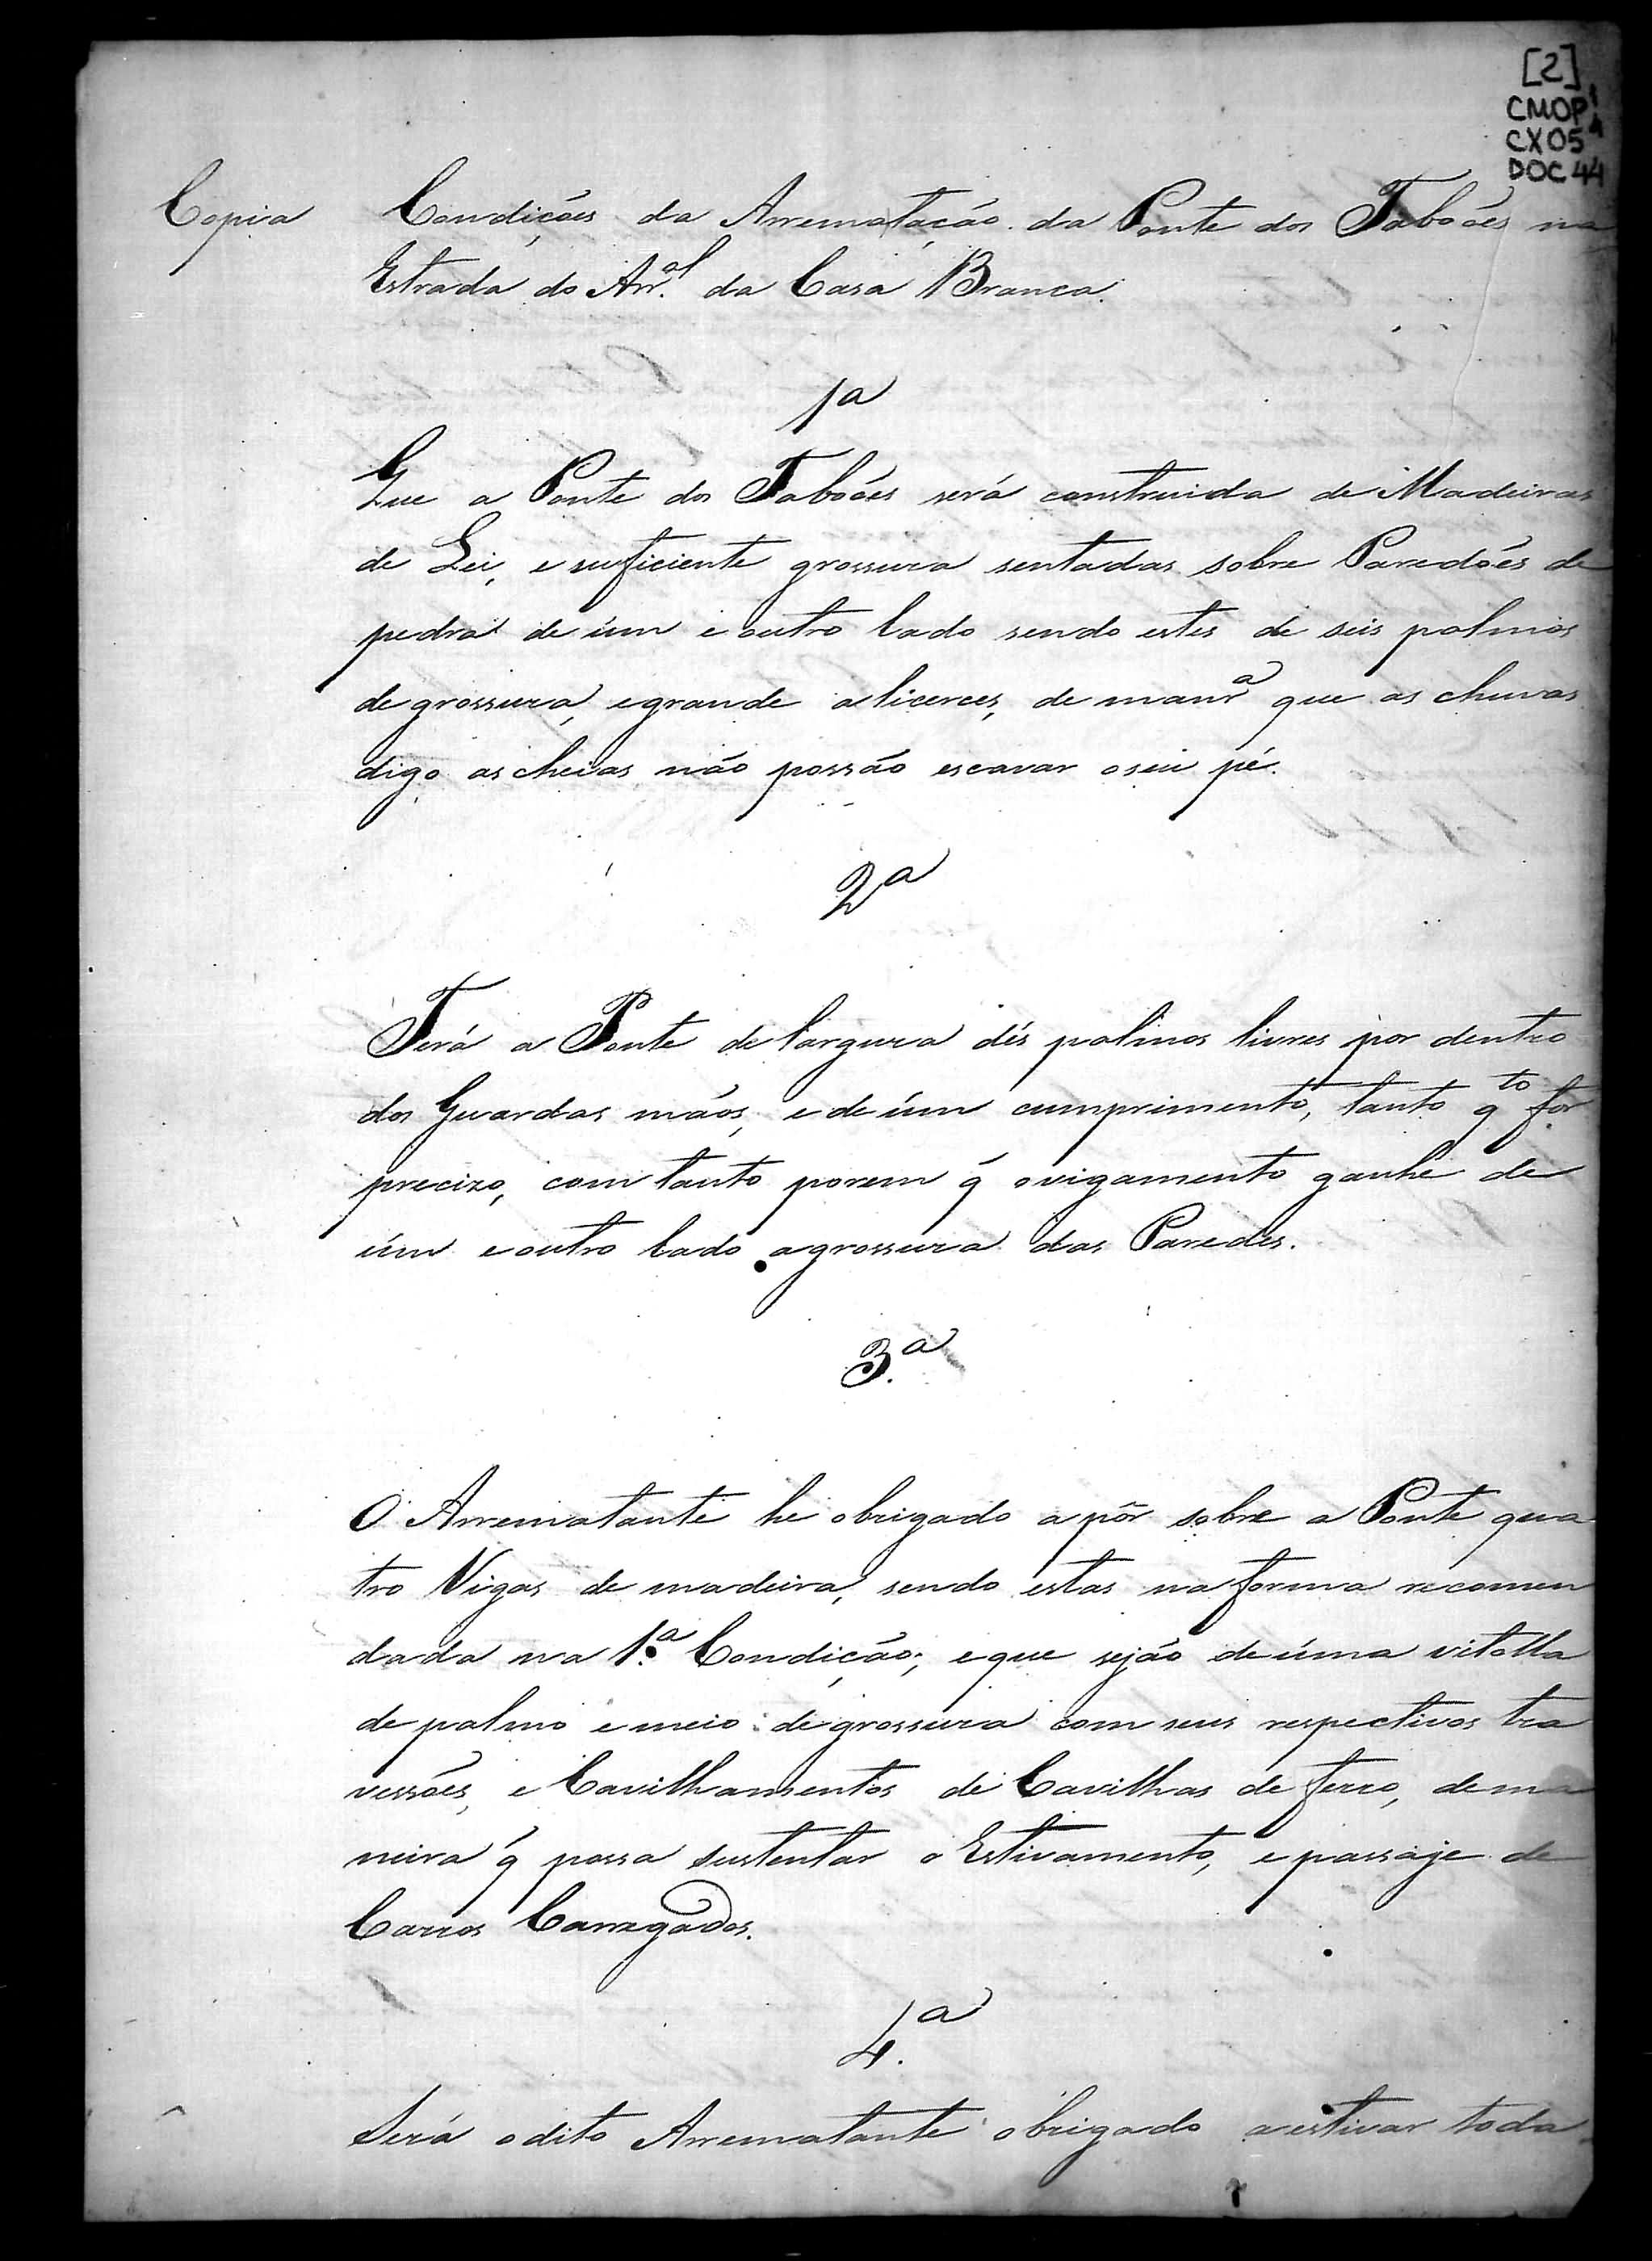 [2]
CMOP 1
CX05 4
DOC 44
Copia Condições da Arrematação da Ponte dos Taboões na
Estrada do Arr.al da Casa Branca.
1a
Que a Ponte dos Taboões será construida de Madeiras
de Lei, e suficiente grossura sentadas sobre Paredões de
pedra de úm e outro lado sendo estes de seis palmos
de grossura, e grande alicerces, de manr.a que as chuvas
digo as cheias não possão escavar o seu pé.
2a
Terá a Ponte de largura dés palmos livres por dentro
dos Guardas mãos, e de úm cumprimento, tanto qto for
precizo, com tanto porem q̃ o vigamento ganhe de
úm e outro lado a grossura das Paredes.
3.a
O Arrematante he obrigado a pôr sobre a Ponte qua
tro Vigas de madeira, sendo estas na forma recomen
dada na 1.a Condição; e que sejão de úma vitolla
de palmo e meio de grossura com seus respectivos tra
vessões, e Cavilhamentos de Cavilhas de ferro, de ma
neira q̃ possa sustentar o Estivamento, e passaje de
Carros Carregados.
4.a
Será o dito Arrematante obrigado a estivar toda